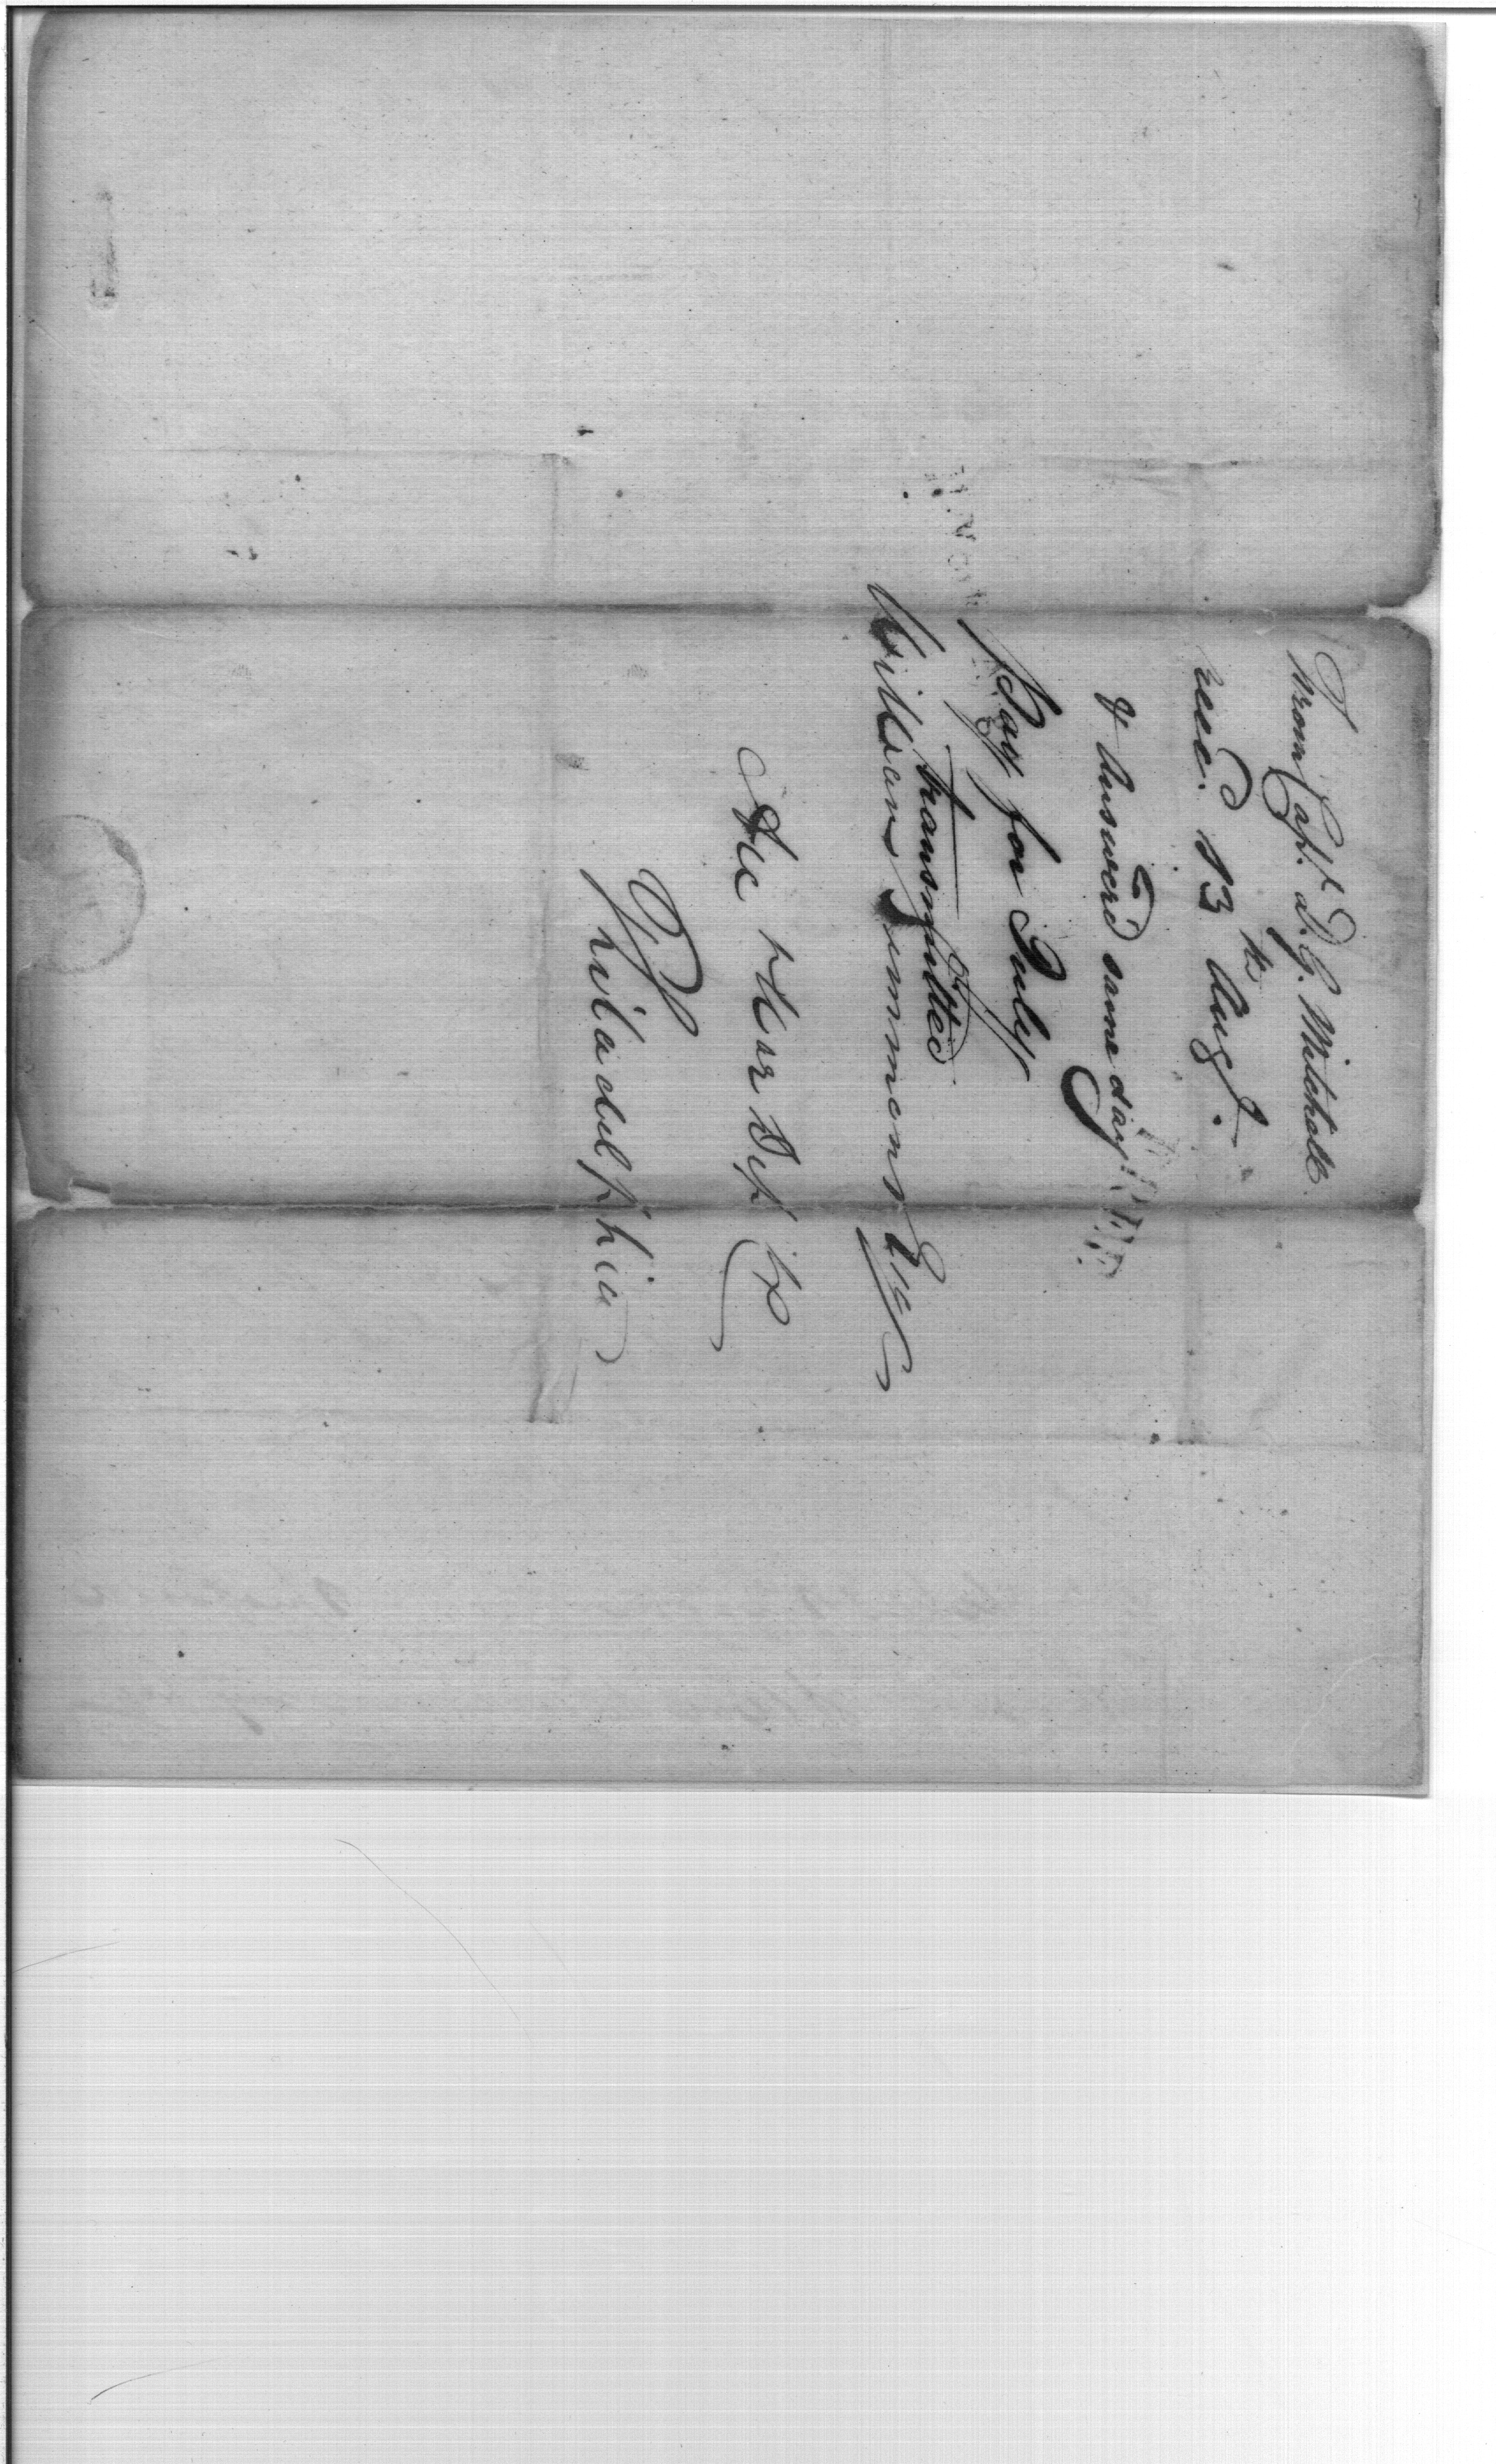 From Capt. D. G. Mitchell.
recd. 13th Augt.
& Answerd same day
Pay for July
transmitted
William Simmons Esqr
Acc War Dep
Philadelphia